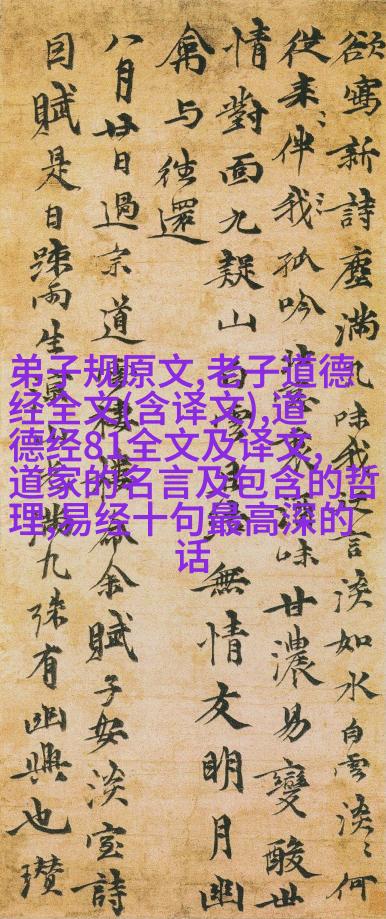 欲寫新詩塵滿几味我言淡如水白雲淡〻何
從来〻伴我〻孤吟味甘濃易變酸世
情對面九疑山白雲無情友明月幽
禽与往還
八月廿日過宗道命余賦子安淡室詩
目賦是日踈雨生九疎有幽興也瓚
弟子规原文,老子道德
经全文(含译文),道
德经81全文及译文,
道家的名言及包含的哲
理,易经十句最高深的
话